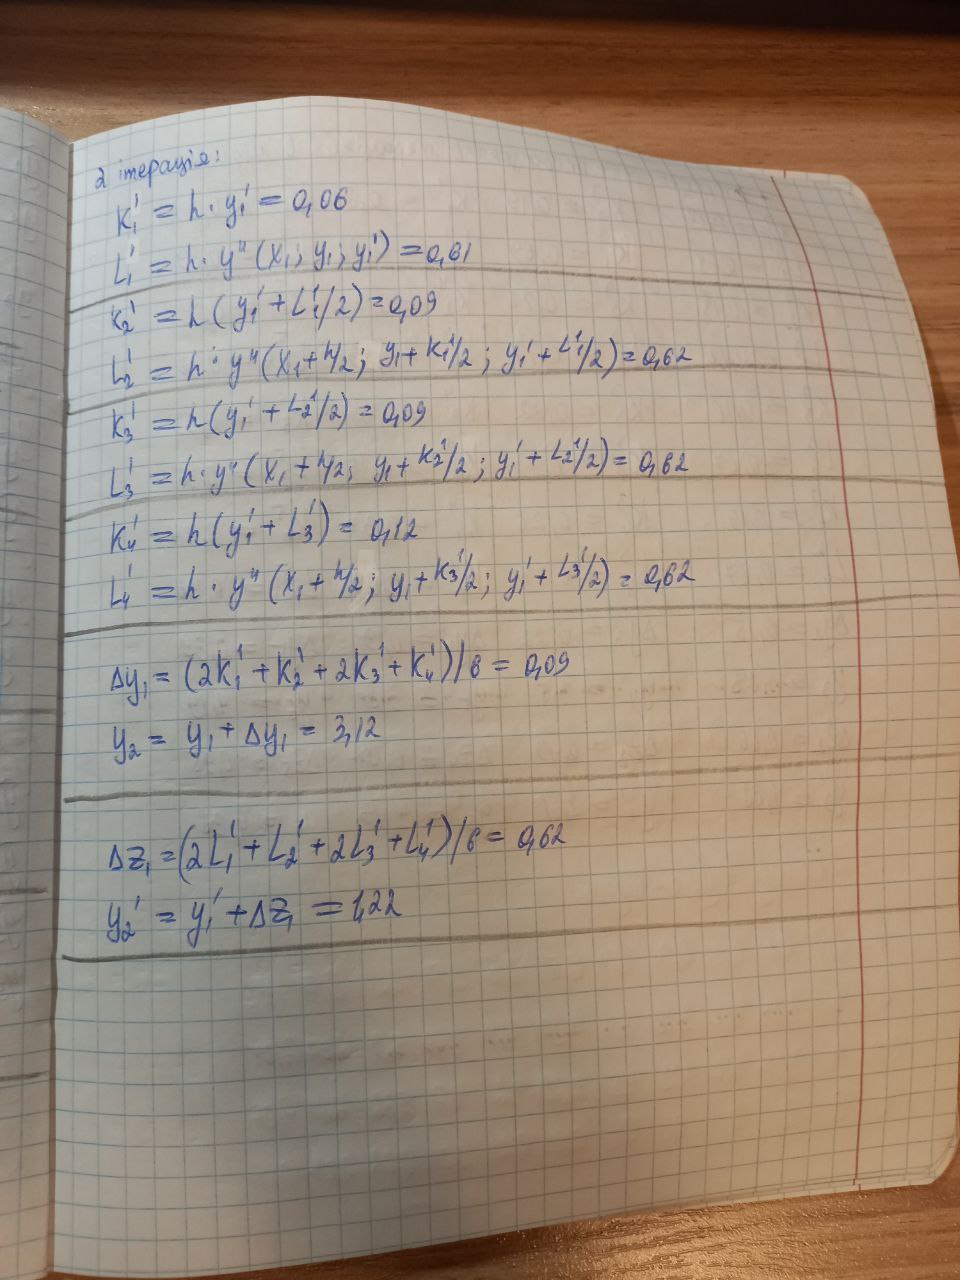 2 ітерація:
K₁¹ = h · y₁' = 0,06
L₁¹ = h · y" (x₁; y₁; y₁') = 0,61
K₂¹ = h (y₁' + L₁¹/2) = 0,09
L₂¹ = h · y" (x₁ + h/2; y₁ + K₁¹/2; y₁' + L₁¹/2) = 0,62
K₃¹ = h (y₁' + L₂¹/2) = 0,09
L₃¹ = h · y" (x₁ + h/2; y₁ + K₂¹/2; y₁' + L₂¹/2) = 0,62
K₄¹ = h (y₁' + L₃¹) = 0,12
L₄¹ = h · y" (x₁ + h/2; y₁ + K₃¹/2; y₁' + L₃¹/2) = 0,62
Δy₁ = (2K₁¹ + K₂¹ + 2K₃¹ + K₄¹)/6 = 0,09
y₂ = y₁ + Δy₁ = 3,12
Δz₁ = (2L₁¹ + L₂¹ + 2L₃¹ + L₄¹)/6 = 0,62
y₂' = y₁' + Δz₁ = 1,22